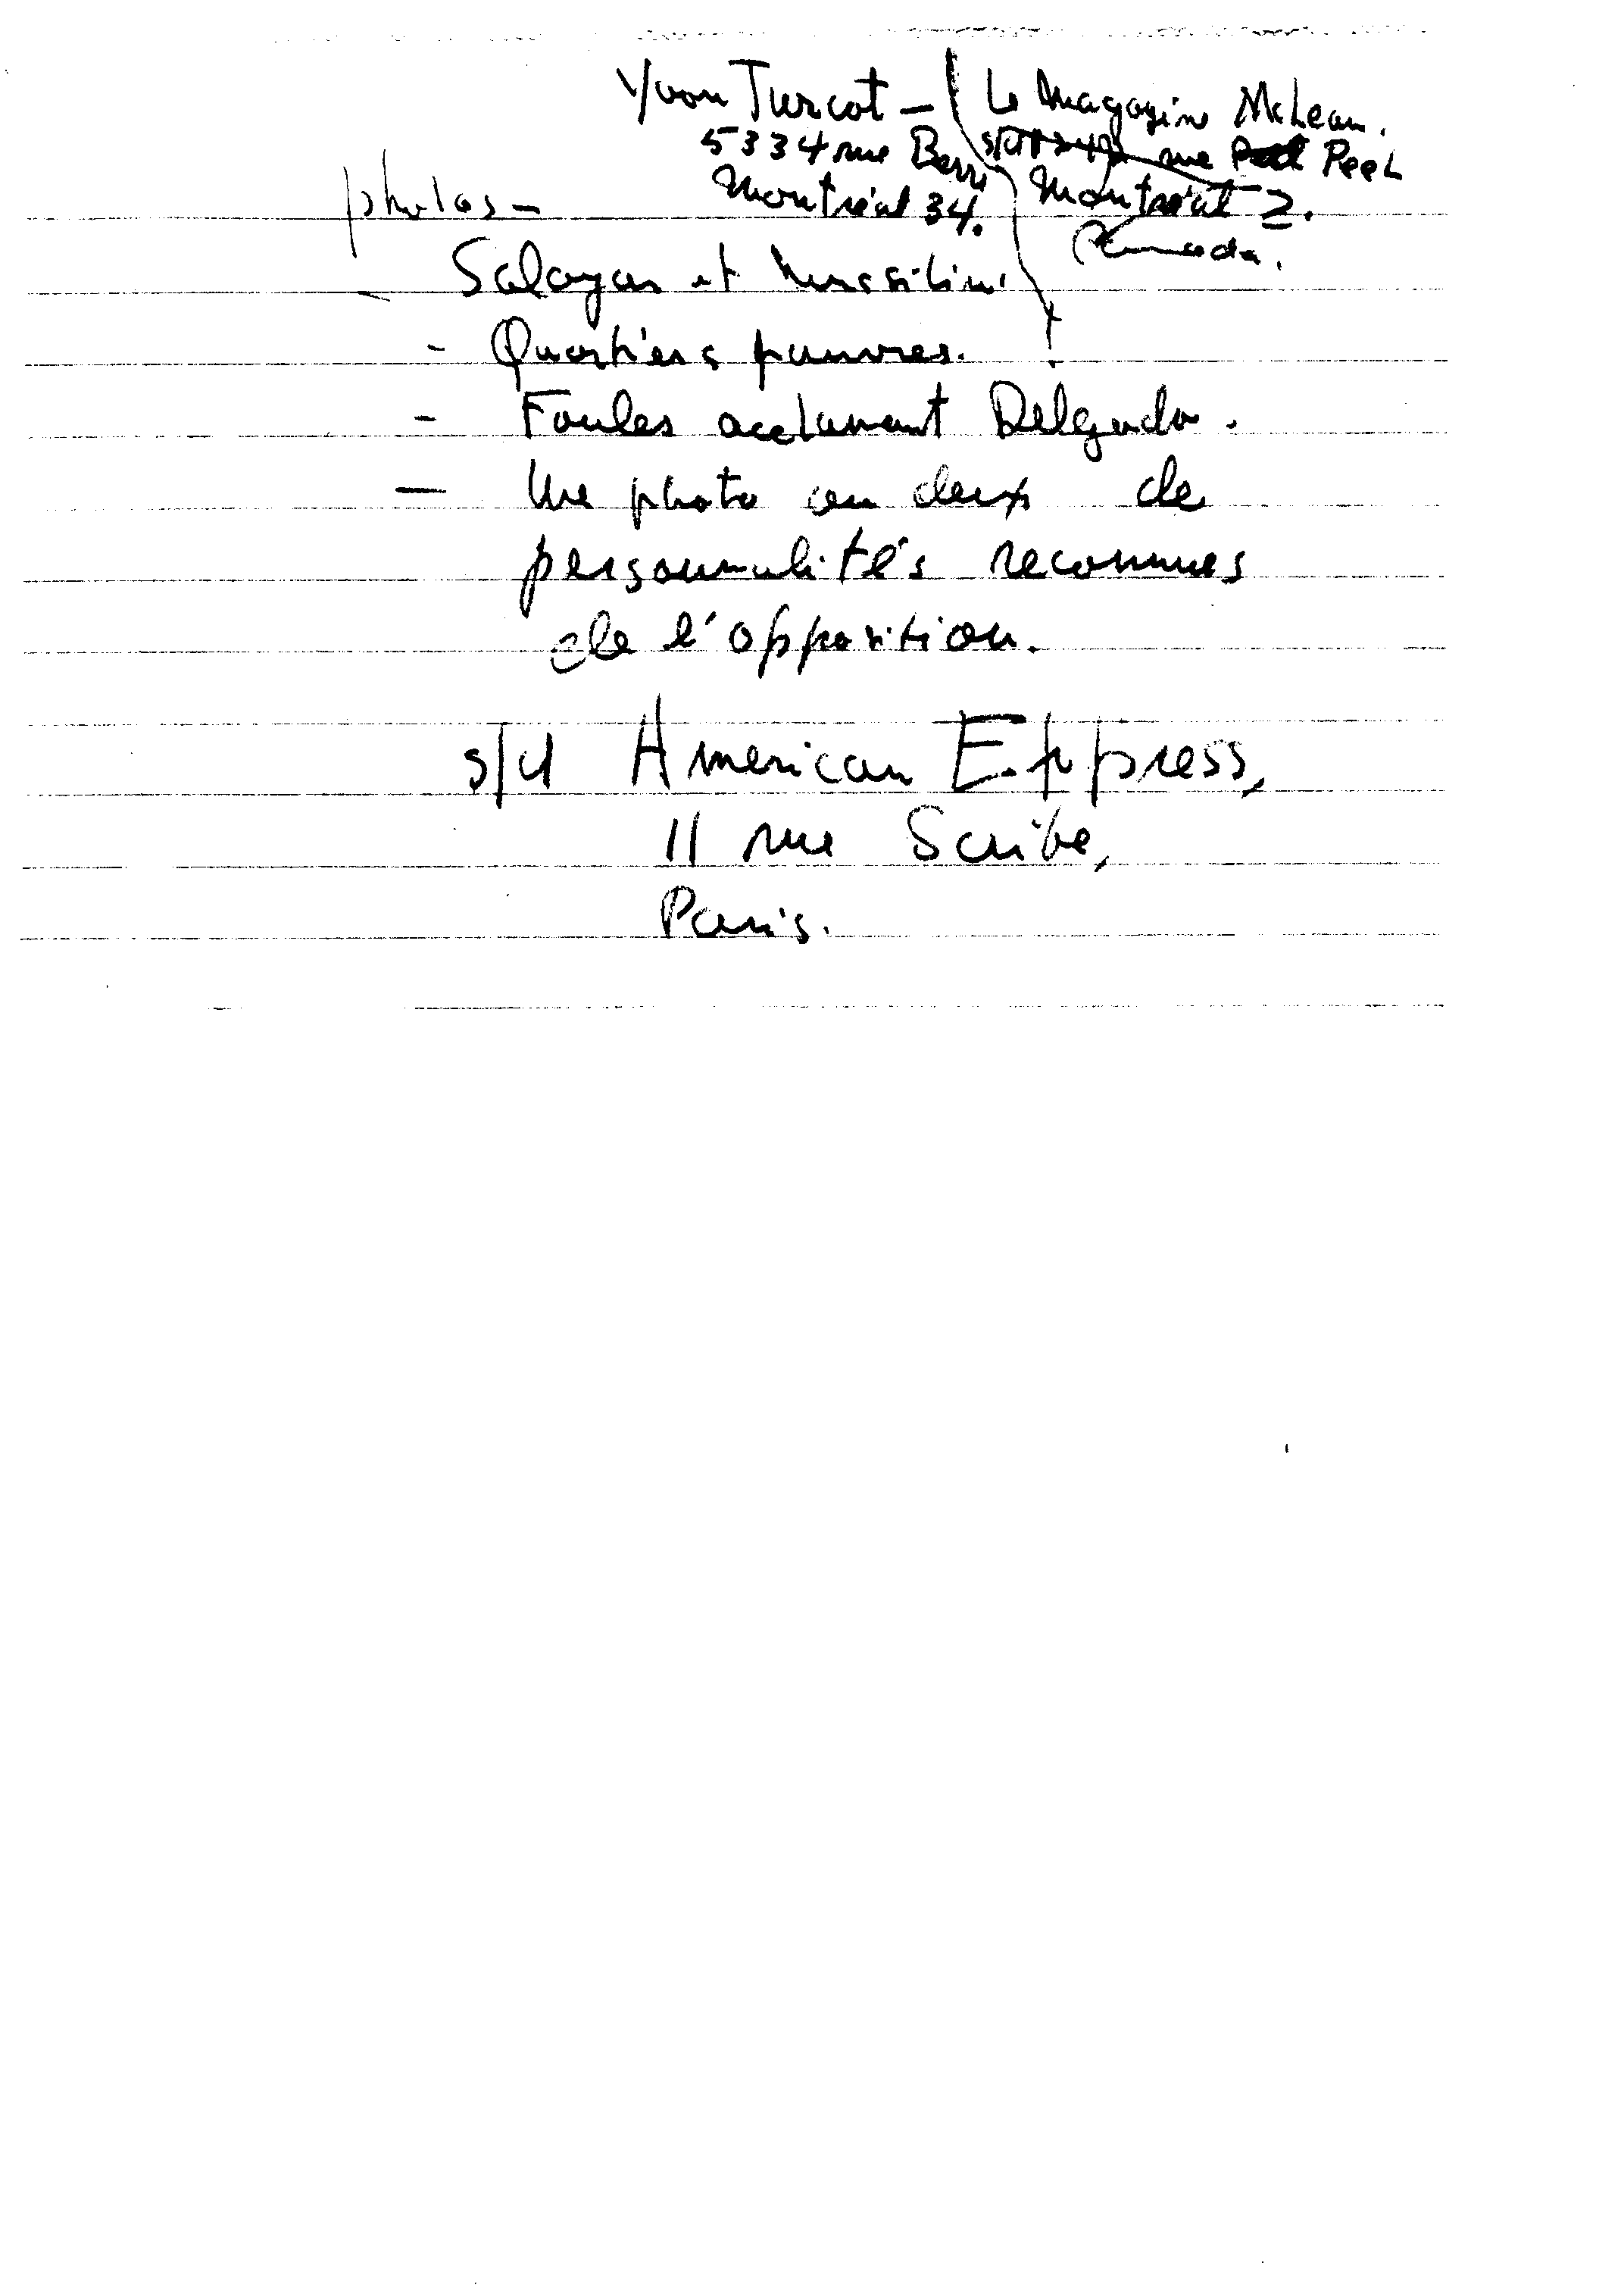 Yvon Turcot - Le Magazine McLean.
5334 rue Berri rue Peel
Montréal 34. Montréal 2.
Canada.
photos -
- Salazar et Mussolini
- Quartiers pauvres.
- Foules acclamant Delgado.
- Une photo ou deux de
personnalités reconnues
de l'opposition.
s/d American Express,
11 rue Scribe,
Paris.